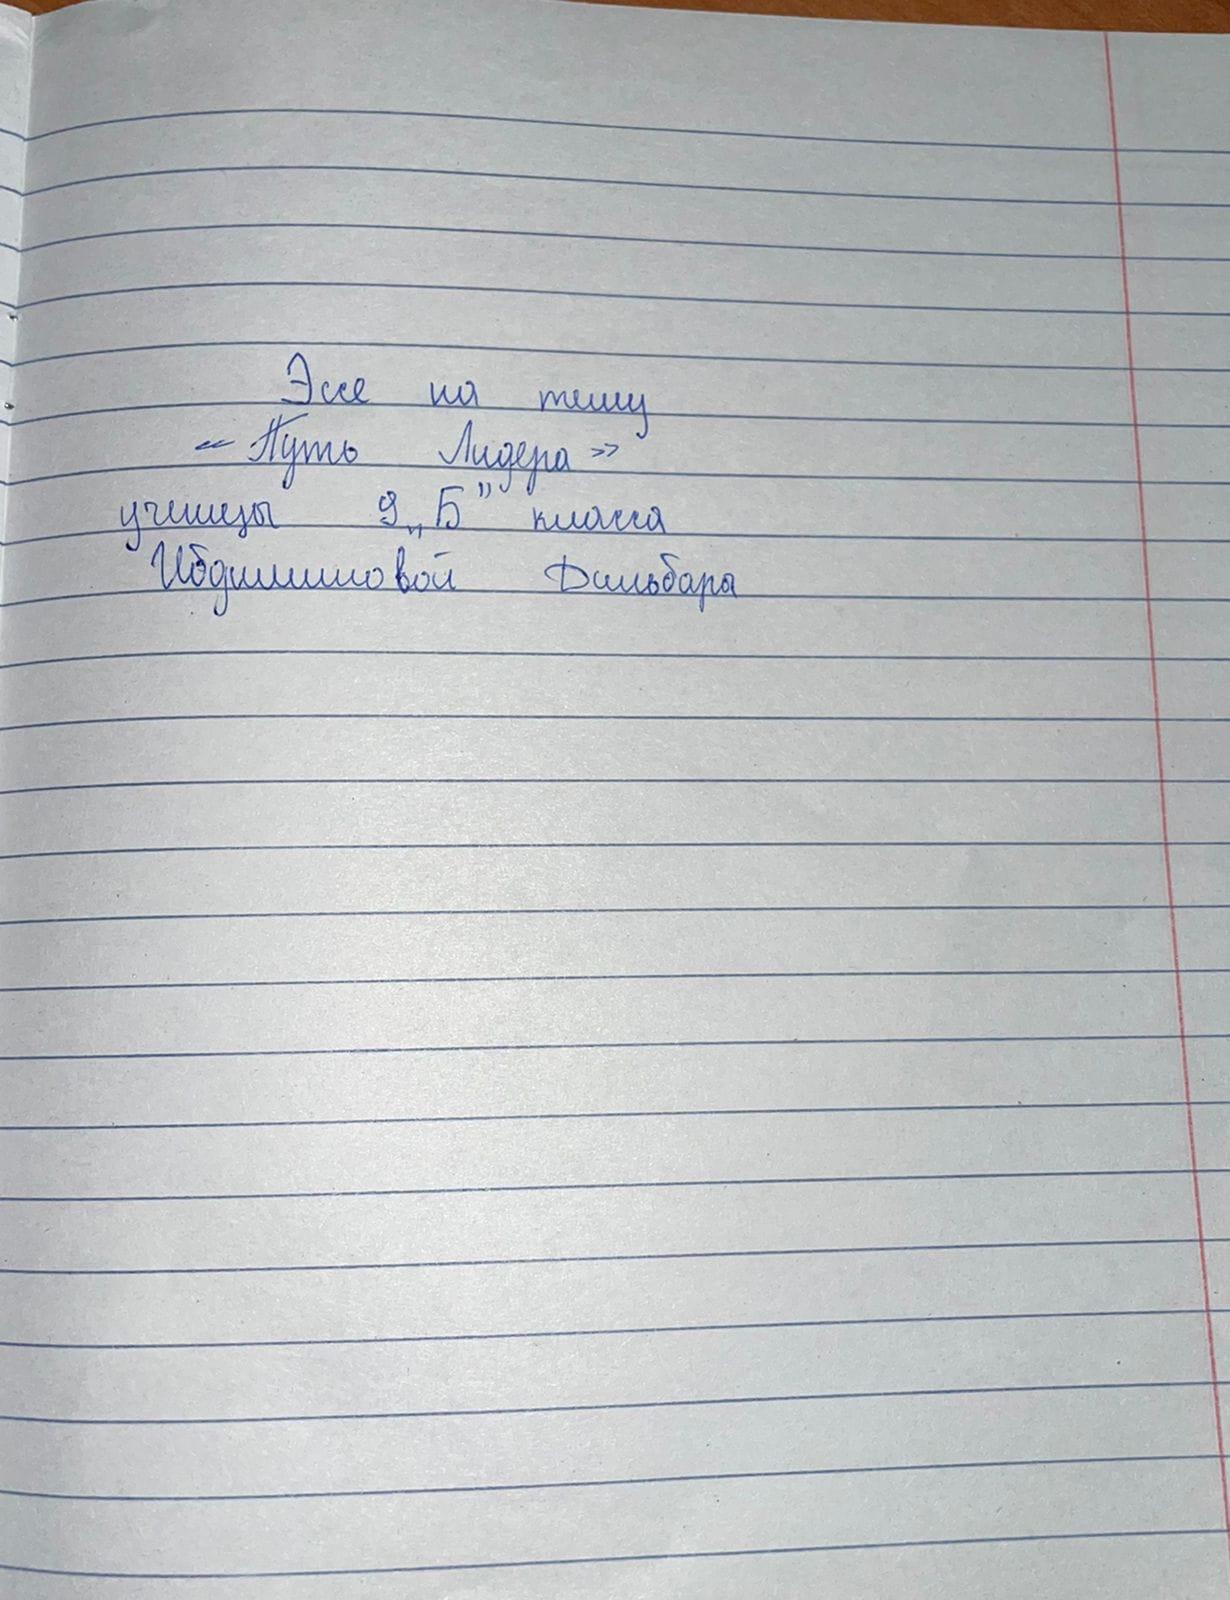 Эссе на тему
«Путь Лидера»
ученицы 9 „Б” класса
Дильбары